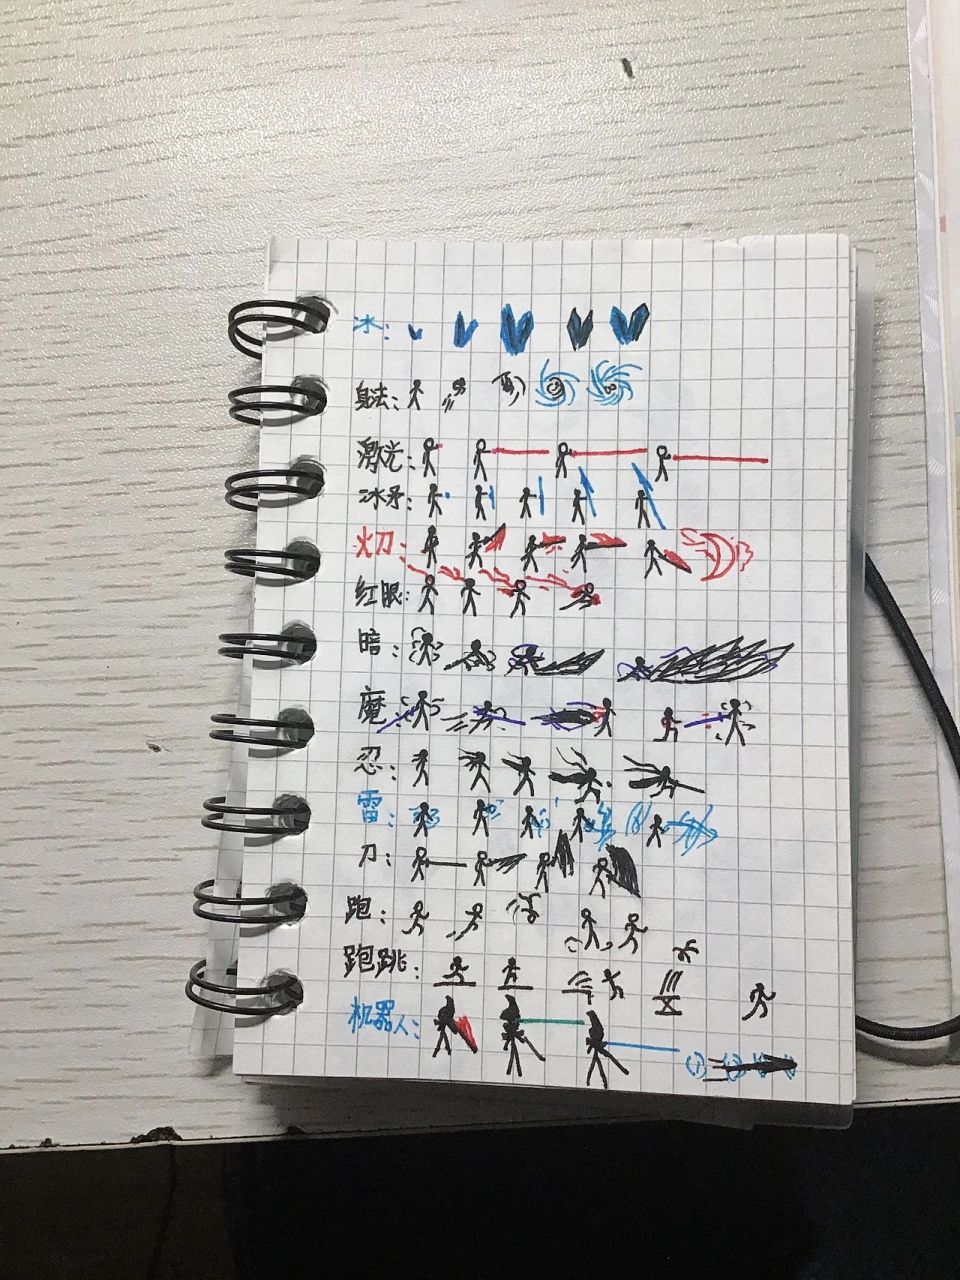 冰：
身法：
激光：
冰矛：
火刀：
红眼：
暗：
魔：
忍：
雷：
刀：
跑：
跑跳：
机器人：